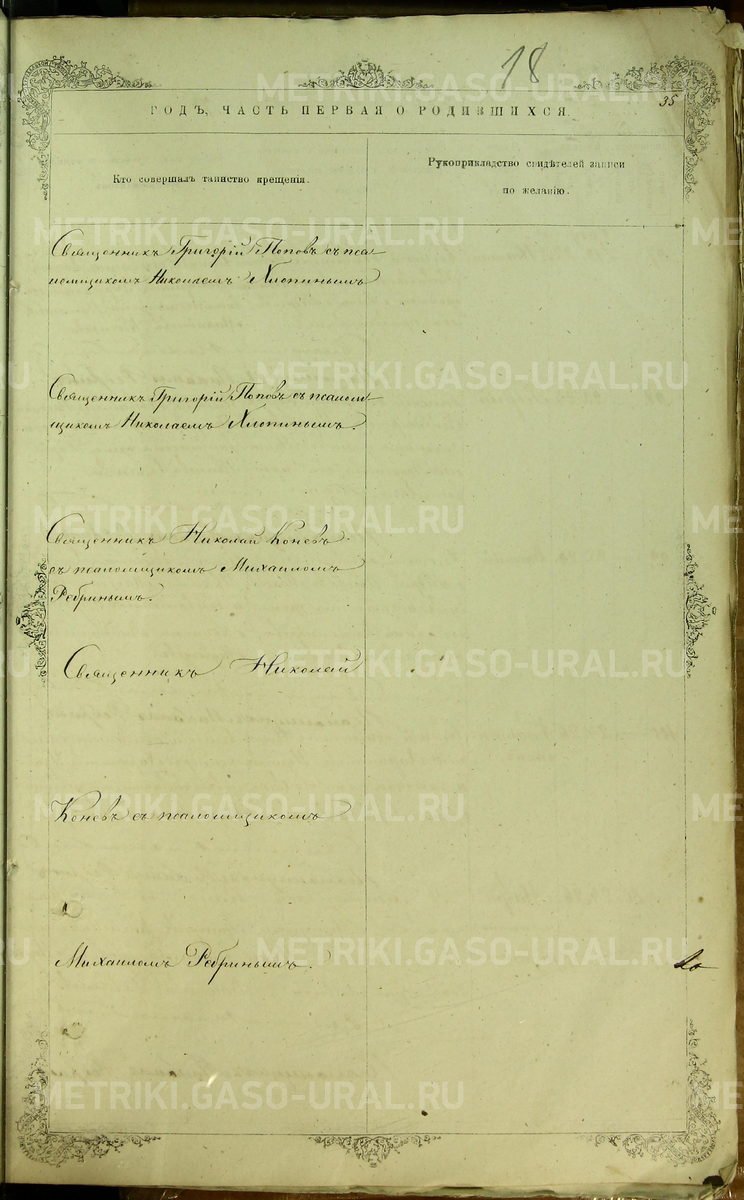 18
35
ГОДЪ, ЧАСТЬ ПЕРВАЯ О РОДИВШИХСЯ.
Кто совершалъ таинство крещенія.
Рукоприкладство свидѣтелей записи
по желанію.
Священникъ Григорій Поповъ съ пса
ломщикомъ Николаемъ Хлопинымъ
Священникъ Григорій Поповъ съ псалом
щикомъ Николаемъ Хлопинымъ.
Священникъ Николай Коневъ
съ псаломщикомъ Михаиломъ
Ребринымъ.
Священникъ Николай
Коневъ съ псаломщикомъ
Михаиломъ Ребринымъ.
METRIKI.GASO-URAL.RU